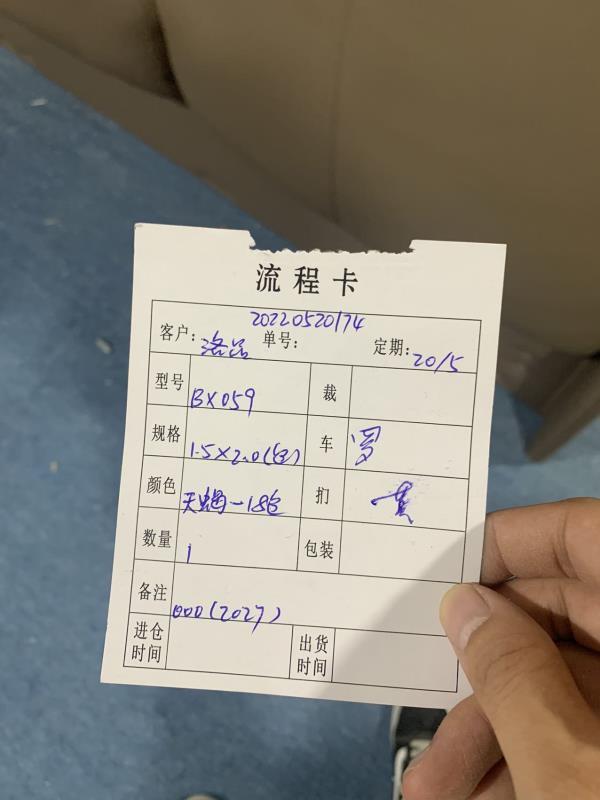 流程卡
2022052074
客户：洛品 单号： 定期：20/5
型号 BX059 裁
规格 1.5×2.0( ) 车 罗
颜色 天蝎-18色 扪 黄
数量 1 包装
备注 000(2027)
进仓时间 出货时间